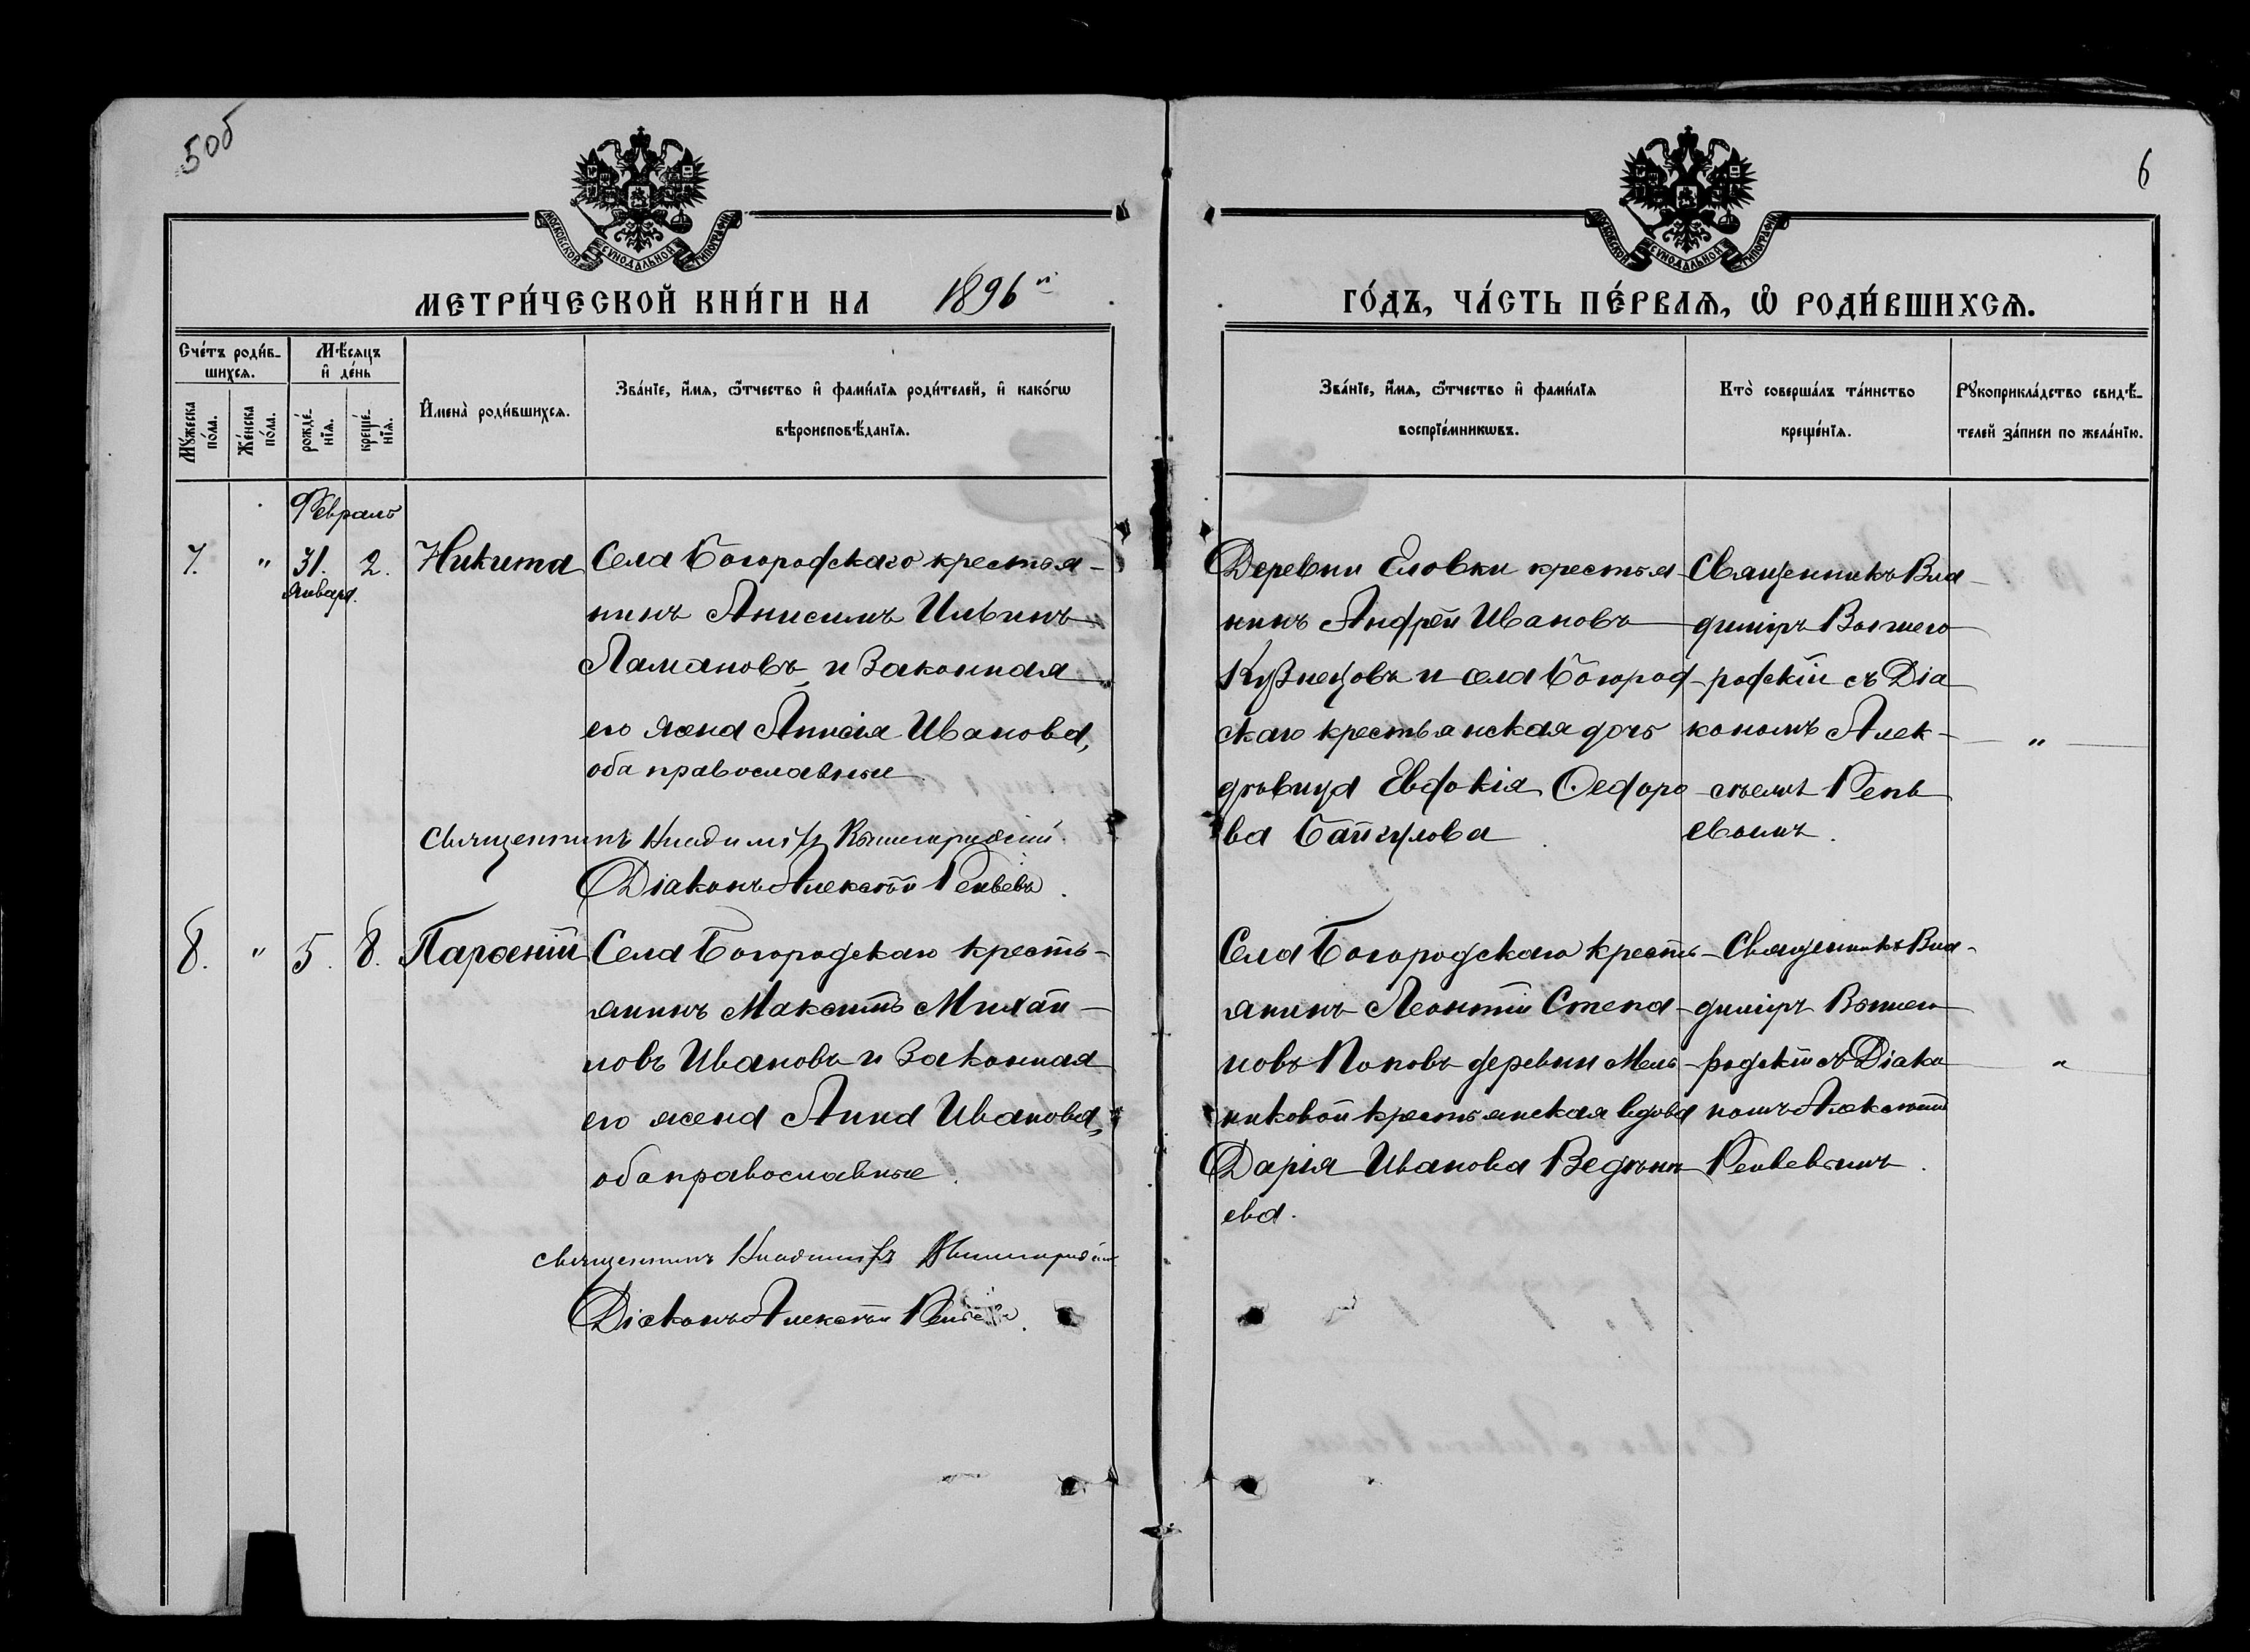 5об
6
МОСКОВСКОЙ СѴНОДАЛЬНОЙ ТИПОГРАФІИ
МОСКОВСКОЙ СѴНОДАЛЬНОЙ ТИПОГРАФІИ
МЕТРИ́ЧЕСКОЙ КНИ́ГИ НА 1896й
ГО́ДЪ, ЧА́СТЬ ПЕ́РВАѦ, Ѽ РОДИ́ВШИХСѦ.
Сче́тъ роди́в-
шихсѧ.
Мꙋ́жеска
по́ла.
Же́нска
по́ла.
Мѣ́сѧцъ
и҆ де́нь
рожде́-
нїѧ.
креще́-
нїѧ.
И҆мена̀ роди́вшихсѧ.
Зва́нїе, и҆́мѧ, ѻ҆́тчество и҆ фами́лїѧ роди́телей, и҆ како́гѡ
вѣроисповѣ́данїѧ.
Зва́нїе, и҆́мѧ, ѻ҆́тчество и҆ фами́лїѧ
воспрїе́мникѡвъ.
Кто̀ соверша́лъ та́инство
креще́нїѧ.
Рꙋкоприкла́дство свидѣ́-
телей за́писи по жела́нїю.
Февраль
7. " 31. 2. Никита
Января.
Села Богородскаго крестья-
нинъ Анисимъ Ильинъ
Ламановъ и законная
его жена Анисія Иванова,
оба православные
Священникъ Владиміръ Вышегородскій
Діаконъ Алексѣй Реньевъ.
Деревни Еловки крестья-
нинъ Андрей Ивановъ
Кузнецовъ и села Богород-
скаго крестьянская дочь
дѣвица Евдокія Ѳедоро
ва Байгулова
Священникъ Вла-
диміръ Вышего
родскій съ Діа
кономъ Алек-
сѣемъ Рень
евымъ.
"
8. " 5. 8. Парѳеній
Села Богородскаго кресть-
янинъ Максимъ Михай-
ловъ Ивановъ и законная
его жена Анна Иванова,
оба православные.
Священникъ Владиміръ Вышегородскій
Діаконъ Алексѣй Реньевъ.
Села Богородскаго кресть-
янинъ Леонтій Степа-
новъ Поповъ деревни Мель-
никовой крестьянская вдова
Дарія Иванова
ева.
Священникъ Вла-
диміръ Вышего
родскій съ Діако
номъ Алексѣемъ
Реньевымъ.
"